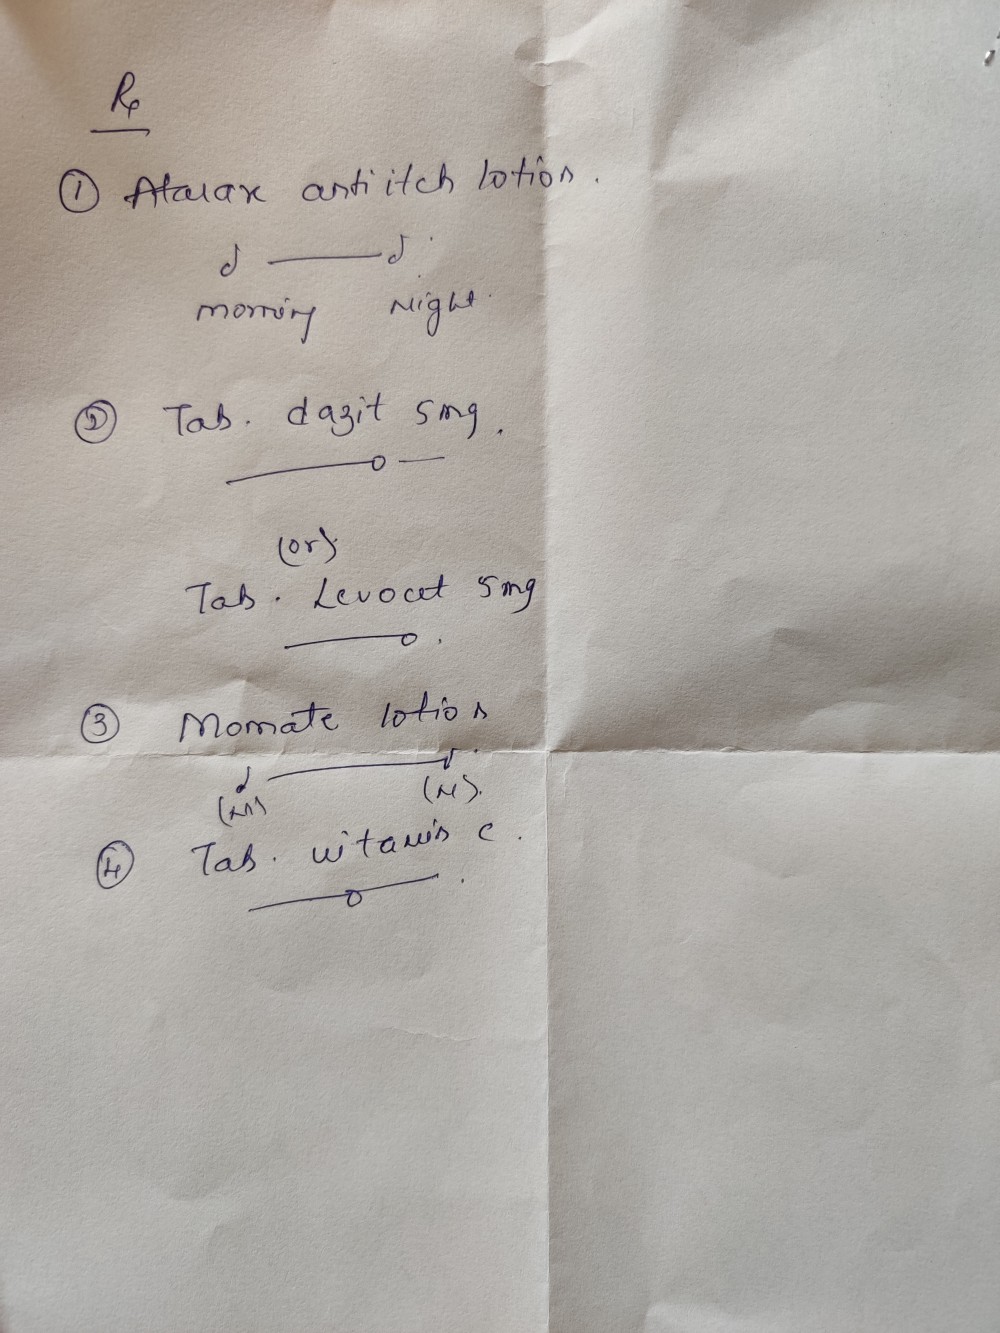 Rx
① Atarax anti itch lotion.
morning night.
② Tab. dazit 5mg.
(or)
Tab. Levocet 5mg
③ Momate lotion
(M) (N).
④ Tab. vitamin c.